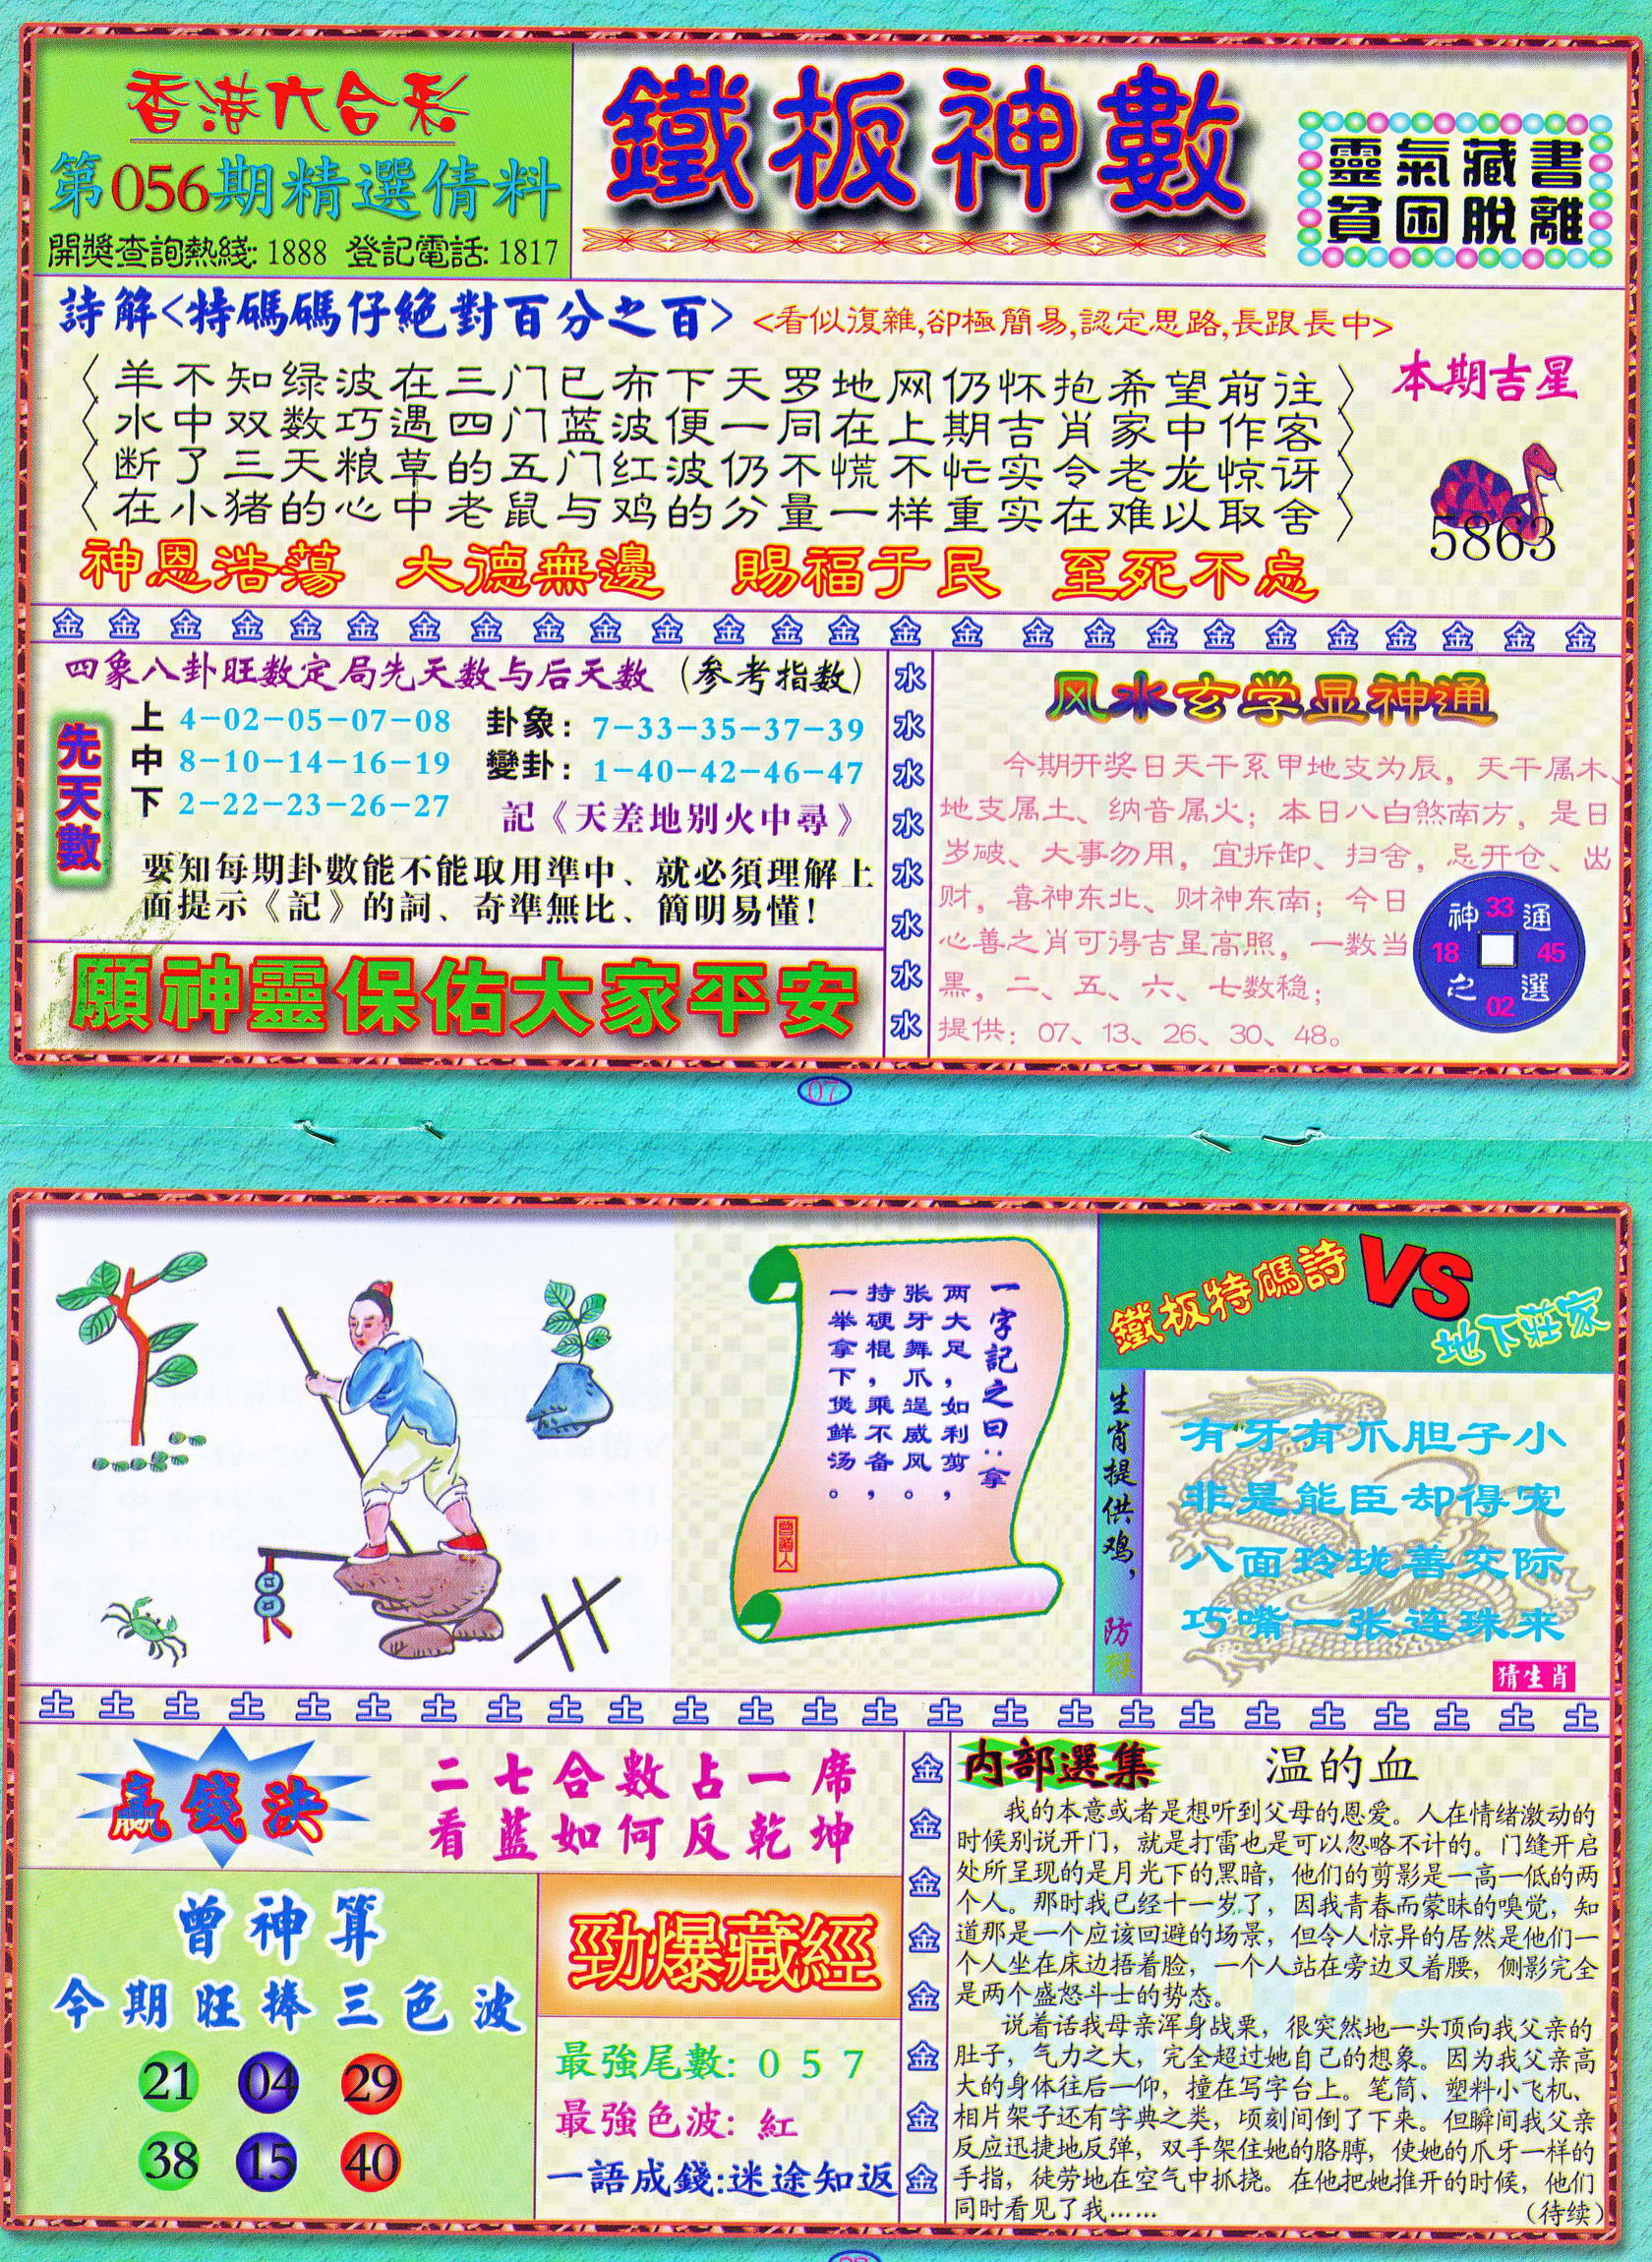 香港六合彩
第056期精選倩料
開獎查詢熱綫: 1888 登記電話: 1817
鐵板神數
靈氣藏書
貧困脫離
詩解<特碼碼仔絕對百分之百>
<看似復雜,卻極簡易,認定思路,長跟長中>
羊不知绿波在三门已布下天罗地网仍怀抱希望前往
水中双数巧遇四门蓝波便一同在上期吉肖家中作客
断了三天粮草的五门红波仍不慌不忙实令老龙惊讶
在小猪的心中老鼠与鸡的分量一样重实在难以取舍
本期吉星
5863
神恩浩蕩 大德無邊 賜福于民 至死不忘
金金金金金金金金金金金金金金金金金金金金金金金金金金
四象八卦旺数定局先天数与后天数(参考指数)
先天數
上 4-02-05-07-08
中 8-10-14-16-19
下 2-22-23-26-27
卦象: 7-33-35-37-39
變卦: 1-40-42-46-47
記《天差地別火中尋》
要知每期卦數能不能取用準中、就必須理解上
面提示《記》的詞、奇準無比、簡明易懂!
願神靈保佑大家平安
水水水水水水水水
风水玄学显神通
今期开奖日天干系甲地支为辰,天干属木、
地支属土、纳音属火;本日八白煞南方,是日
岁破、大事勿用,宜拆卸、扫舍,忌开仓、出
财,喜神东北、财神东南;今日
心善之肖可得吉星高照,一数当
黑,二、五、六、七数稳;
提供:07、13、26、30、48。
神 33 通
18 45
之 02 選
07
一字記之曰:拿
两大足,如利剪,
张牙舞爪逞威风。
持硬棍,乘不备,
一举拿下煲鲜汤。
曾道人
鐵板特碼詩
VS
地下莊家
生肖提供鸡,防猴
有牙有爪胆子小
非是能臣却得宠
八面玲珑善交际
巧嘴一张连珠来
猜生肖
土土土土土土土土土土土土土土土土土土土土土土土土土
贏錢決
二七合數占一席
看藍如何反乾坤
曾神算
今期旺捧三色波
21 04 29
38 15 40
勁爆藏經
最強尾數: 0 5 7
最強色波: 紅
一語成錢:迷途知返
金金金金金金金金
内部選集
温的血
我的本意或者是想听到父母的恩爱。人在情绪激动的
时候别说开门,就是打雷也是可以忽略不计的。门缝开启
处所呈现的是月光下的黑暗,他们的剪影是一高一低的两
个人。那时我已经十一岁了,因我青春而蒙昧的嗅觉,知
道那是一个应该回避的场景,但令人惊异的居然是他们一
个人坐在床边捂着脸,一个人站在旁边叉着腰,侧影完全
是两个盛怒斗士的势态。
说着话我母亲浑身战栗,很突然地一头顶向我父亲的
肚子,气力之大,完全超过她自己的想象。因为我父亲高
大的身体往后一仰,撞在写字台上。笔筒、塑料小飞机、
相片架子还有字典之类,顷刻间倒了下来。但瞬间我父亲
反应迅捷地反弹,双手架住她的胳膊,使她的爪牙一样的
手指,徒劳地在空气中抓挠。在他把她推开的时候,他们
同时看见了我……
(待续)